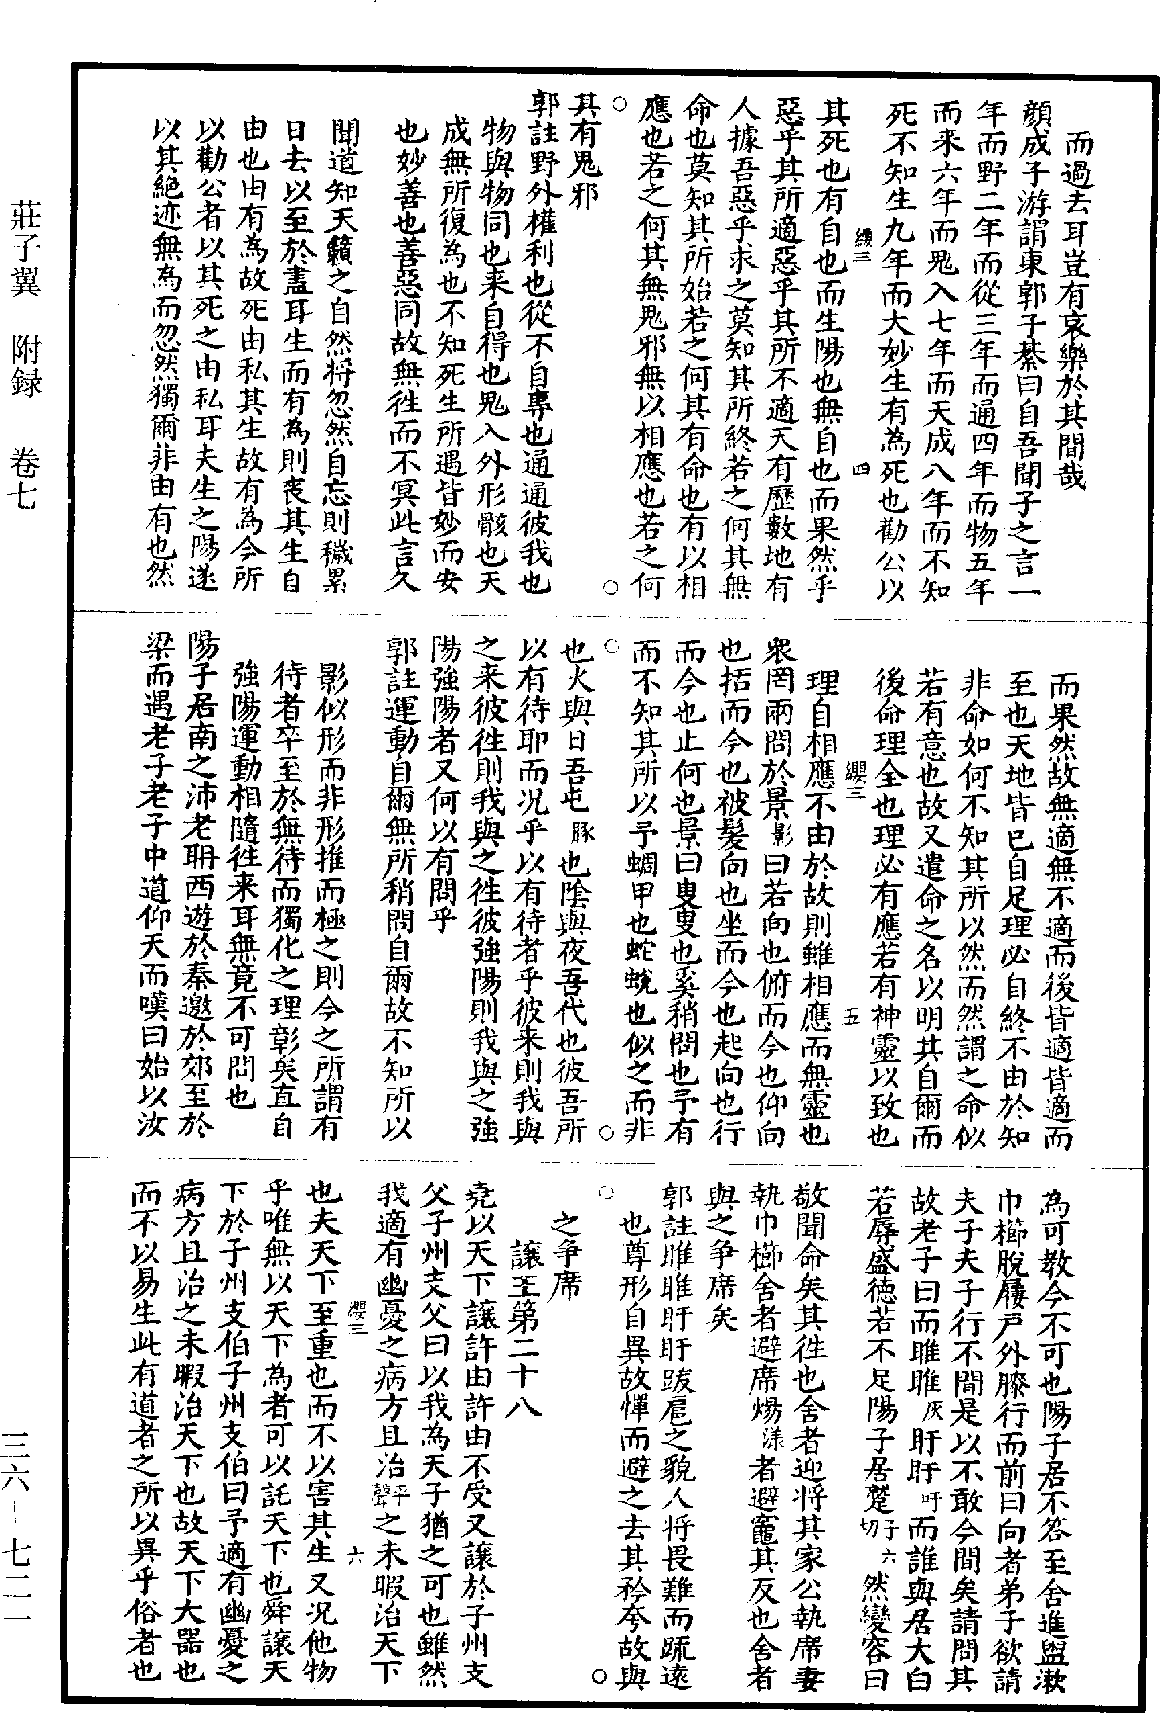 而過去耳豈有哀樂於其間哉
顔成子游謂東郭子綦曰自吾聞子之言一
年而野二年而從三年而通四年而物五年
而来六年而鬼入七年而天成八年而不知
死不知生九年而大妙生有為死也勸公以
纓三 四
其死也有自也而生陽也無自也而果然乎
惡乎其所適惡乎其所不適天有歷數地有
人據吾惡乎求之莫知其所終若之何其無
命也莫知其所始若之何其有命也有以相
應也若之何其無鬼邪無以相應也若之何
其有鬼邪
郭註野外權利也從不自專也通通彼我也
物與物同也来自得也鬼入外形骸也天
成無所復為也不知死生所遇皆妙而安
也妙善也善惡同故無往而不冥此言久
聞道知天籟之自然将忽然自忘則穢累
日去以至於盡耳生而有為則喪其生自
由也由有為故死由私其生故有為今所
以勸公者以其死之由私耳夫生之陽遂
以其絕迹無為而忽然獨爾非由有也然
而果然故無適無不適而後皆適皆適而
至也天地皆已自足理必自終不由於知
非命如何不知其所以然而然謂之命似
若有意也故又遣命之名以明其自爾而
後命理全也理必有應若有神靈以致也
纓三 五
理自相應不由於故則雖相應而無靈也
衆罔兩問於景影曰若向也俯而今也仰向
也括而今也被髮向也坐而今也起向也行
而今也止何也景曰叟叟也奚稍問也予有
而不知其所以予蜩甲也蛇蛻也似之而非
也火與日吾屯豚也陰與夜吾代也彼吾所
以有待耶而况乎以有待者乎彼来則我與
之来彼往則我與之往彼強陽則我與之強
陽強陽者又何以有問乎
郭註運動自爾無所稍問自爾故不知所以
影似形而非形推而極之則今之所謂有
待者卒至於無待而獨化之理彰矣直自
強陽運動相隨往来耳無竟不可問也
陽子居南之沛老聃西遊於秦邀於郊至於
梁而遇老子老子中道仰天而嘆曰始以汝
為可教今不可也陽子居不答至舍進盥漱
巾櫛脫屨戶外膝行而前曰向者弟子欲請
夫子夫子行不間是以不敢今間矣請問其
故老子曰而睢睢灰盱盱吁而誰與居大白
若辱盛徳若不足陽子居蹵子六切然變容曰
敬聞命矣其往也舍者迎将其家公執席妻
執巾櫛舍者避席煬漾者避竈其反也舍者
與之争席矣
郭註睢睢盱盱跋扈之貌人将畏難而疏遠
也尊形自異故憚而避之去其矜夸故與
之争席
讓王第二十八
堯以天下讓許由許由不受又讓於子州支
父子州支父曰以我為天子猶之可也雖然
我適有幽憂之病方且治平聲之未暇治天下
纓三 六
也夫天下至重也而不以害其生又况他物
乎唯無以天下為者可以託天下也舜讓天
下於子州支伯子州支伯曰予適有幽憂之
病方且治之未暇治天下也故天下大器也
而不以易生此有道者之所以異乎俗者也
莊子翼 附録 卷七
三六—七二一